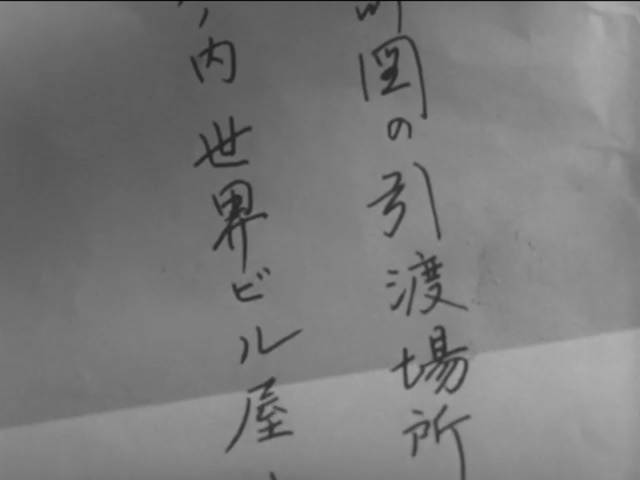 図の引渡場所
ノ内 世界ビル屋